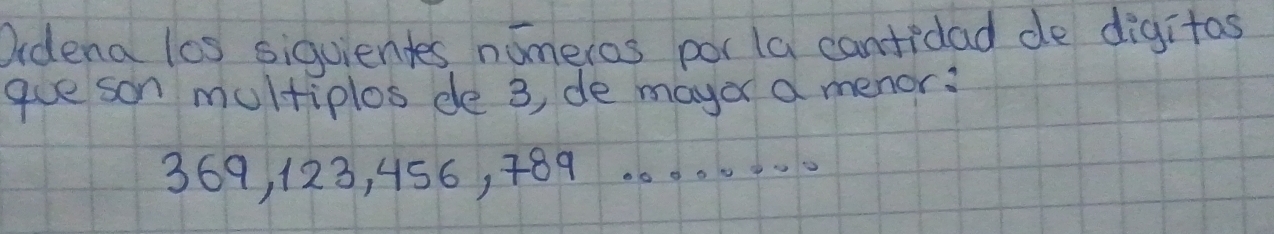 Ordena los siguientes números por la cantidad de digitos
que son multiplos de 3, de mayor a menor:
369, 123, 456, 789 .........